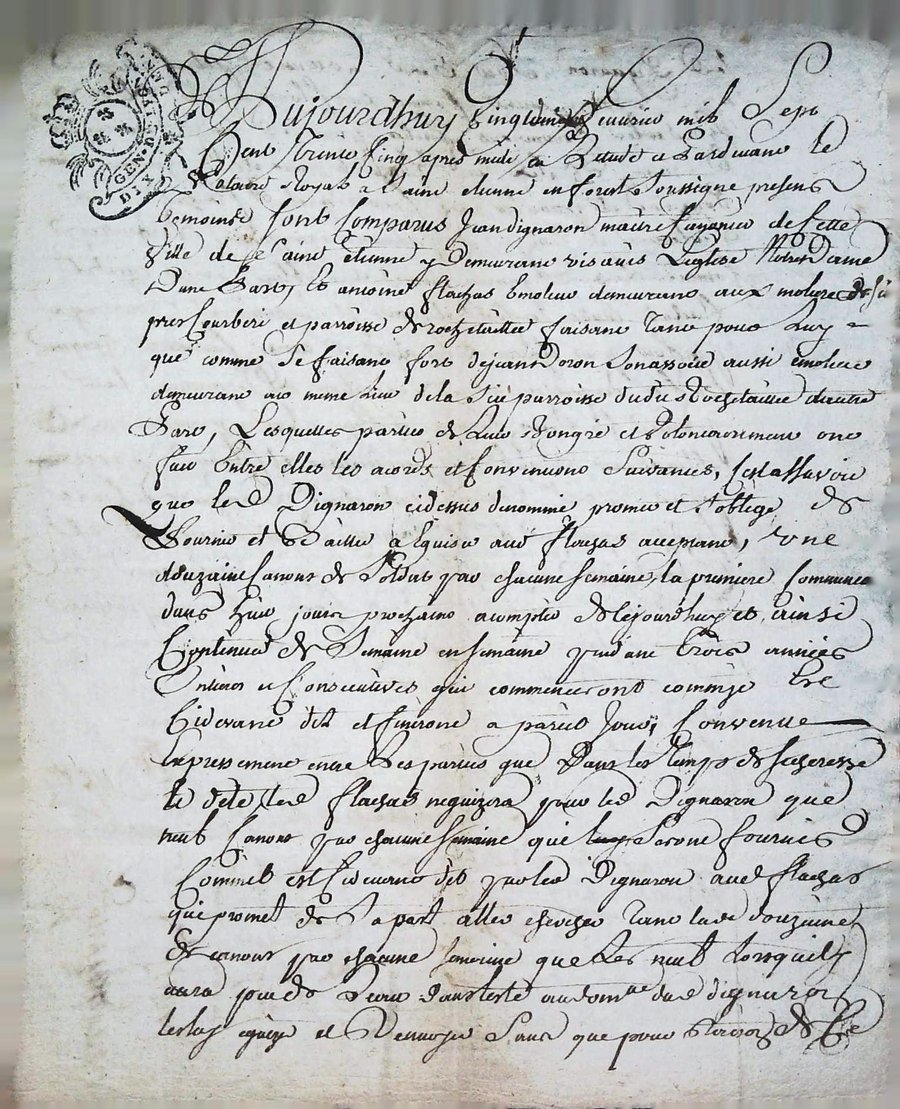 GEN. D
DIX
Aujourdhuy vingt fevrier mil Sept
Cent Trente Cinq apres midi en Letude et Pardevant le
Notaire Royal a Saint etienne en forest Soussigne presens
temoins Sont Comparus Jean dignaron maitre Canonier de Cette
Ville de Saint Etienne y Demeurant vis avis L'eglise Notre Dame
Dune Part, Et antoine flachas Emoleur demeurant aux molieres
pres et parroisse de rochetaillée faisant Tant pour Luy
que comme Se faisant fort dejean Son associé aussi emoleur
demeurant au meme Lieu de la parroisse dudit Rochetaillée dautre
Part, Lesquelles parties de Leur gré et volontairement ont
fait Entre elles les acords et Convenuons Suivantes, Cest assavoir
que led Dignaron cidessus denommé promet et Soblige de
fournir et Bailler a Eguiser aud flachas acceptant, une
douzaine Canons de Soldat par chacune Semaine, la premiere Commence
dans huit jours prochains a compter decejourdhuy et ainsi
Continuer de Semaine en Semaine pendant trois années
Entieres et Consecutives qui commenceront comme
Cidevant dit et finiront a pareil Jour, Convenue
Expressement entre Les parties que Dans les Temps de Secheresse
led flachas neguizera pour led Dignaron que
neuf Canons par chacune Semaine qui luy Seront fournis
Comme est Cidevant dit par led Dignaron aud flachas
qui promet de Sa part aller chercher Tant lad douzaine
de canons par chacune semaine que Les neuf Lorsquil y
aura peu de Leau Dans au dom.lle dud dignaron
les luy et Remetre Sans que pour de